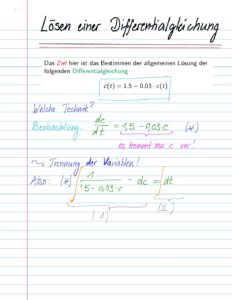 Lösen einer Differentialgleichung
Das Ziel hier ist das Bestimmen der allgemeinen Lösung der
folgenden Differentialgleichung
ċ(t) = 1.5 − 0.03 · c(t)
Welche Technik?
Beobachtung: dc/dt = 1,5 − 0,03·c (*)
es kommt nur c vor!
⤳ Trennung der Variablen!
Also: (*) ∫ 1/(1.5 − 0.03·c) · dc = ∫ dt
(1) (2)